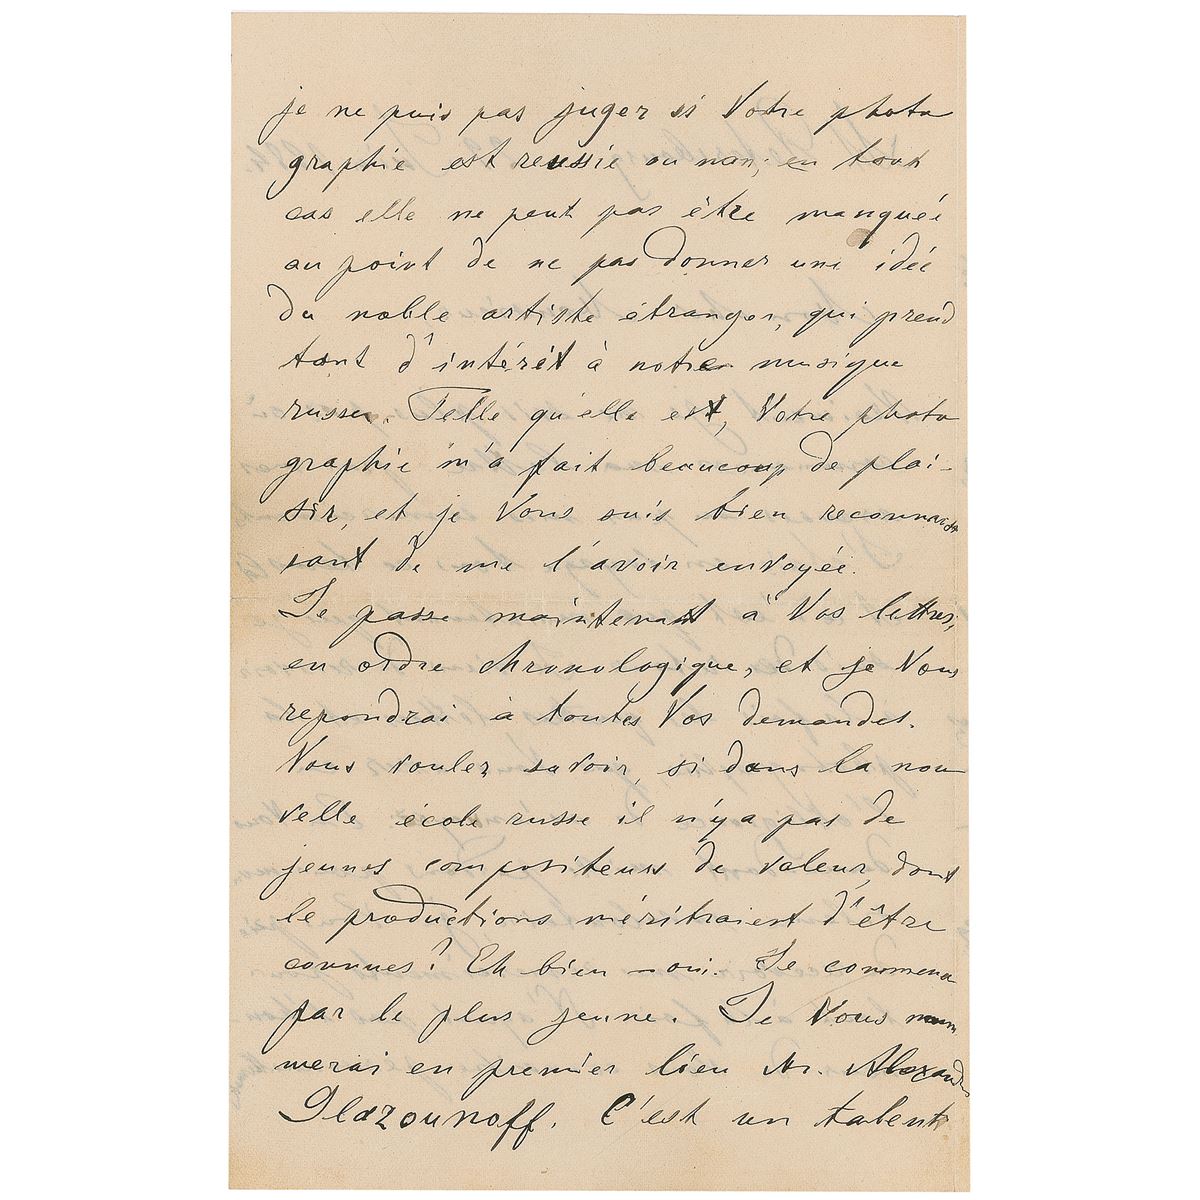 je ne puis pas juger si Votre photo
graphie est reussie ou non; en tout
cas elle ne peut pas être manquée
au point de ne pas donner une idée
du noble artiste étranger, qui prend
tant d'intérêt à notre musique
russe. Telle qu'elle est, Votre photo
graphie m'a fait beaucoup de plai-
sir, et je Vous suis bien reconnais
sant de me l'avoir envoyée.
Je passe maintenant à Vos lettres,
en ordre chronologique, et je Vous
repondrai à toutes Vos demandes.
Vous voulez savoir, si dans la nou
velle école russe il n'y a pas de
jeunes compositeurs de valeur, dont
le productions méritraient d'être
connues? Eh bien – oui. Je commence
par le plus jeune. Je Vous nom
merai en premier lieu Mr. Alexandre
Glazounoff. C'est un talent